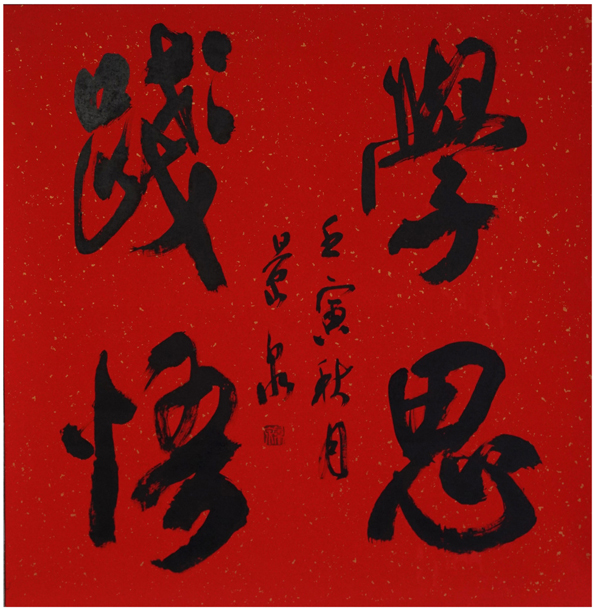 學思
踐悟
壬寅秋月
景泉